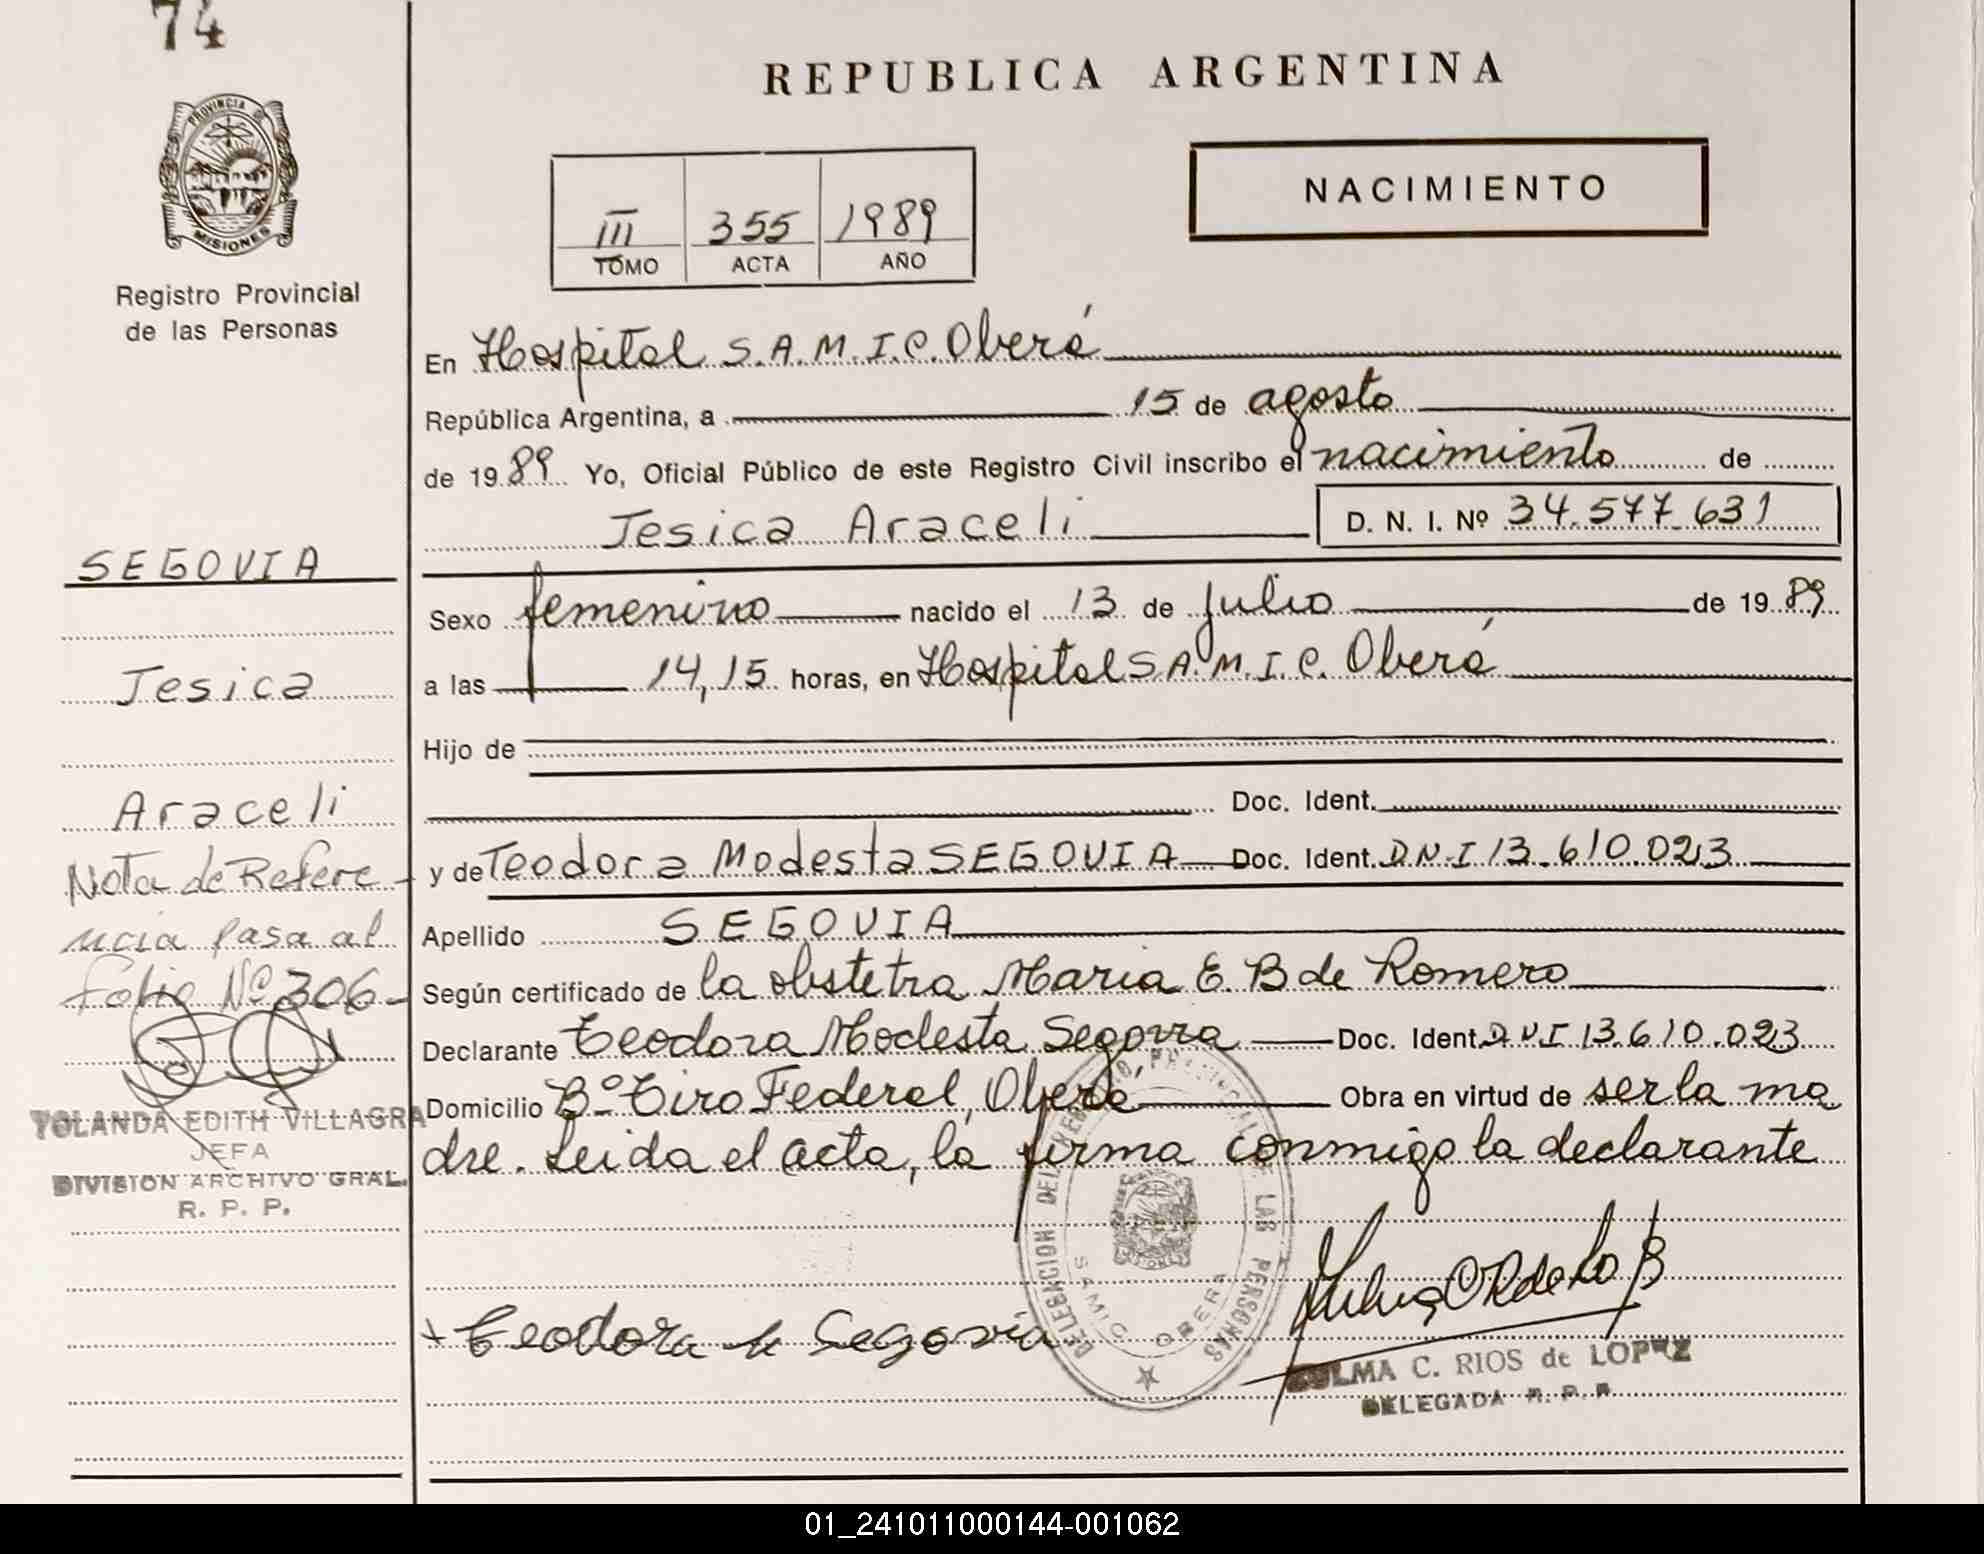 74
PROVINCIA DE
MISIONES
Registro Provincial
de las Personas
REPUBLICA ARGENTINA
NACIMIENTO
III 355 1989
TOMO ACTA AÑO
En Hospital S.A.M.I.C. Oberá
República Argentina, a 15 de agosto
de 1989 Yo, Oficial Público de este Registro Civil inscribo el nacimiento de
Jesica Araceli D. N. I. Nº 34.577.631
SEGOVIA
Jesica
Araceli
Nota de Refere-
ncia pasa al
folio Nº 306-
YOLANDA EDITH VILLAGRA
JEFA
DIVISION ARCHIVO GRAL.
R. P. P.
Sexo femenino nacido el 13 de julio de 1989
a las 14,15 horas, en Hospital S.A.M.I.C. Oberá
Hijo de
Doc. Ident.
y de Teodora Modesta SEGOVIA Doc. Ident. D.N.I 13.610.023
Apellido SEGOVIA
Según certificado de la obstetra Maria E. B de Romero
Declarante Teodora Modesta Segovia Doc. Ident. DNI 13.610.023
Domicilio Bº Tiro Federal, Oberá Obra en virtud de ser la ma
dre. Leida el acta, la firma conmigo la declarante
DELEGACION DEL REGISTRO PROVINCIAL DE LAS PERSONAS
SAMIC OBERA
Teodora M Segovia
ZULMA C. RIOS de LOPEZ
DELEGADA R. P. P.
01_241011000144-001062